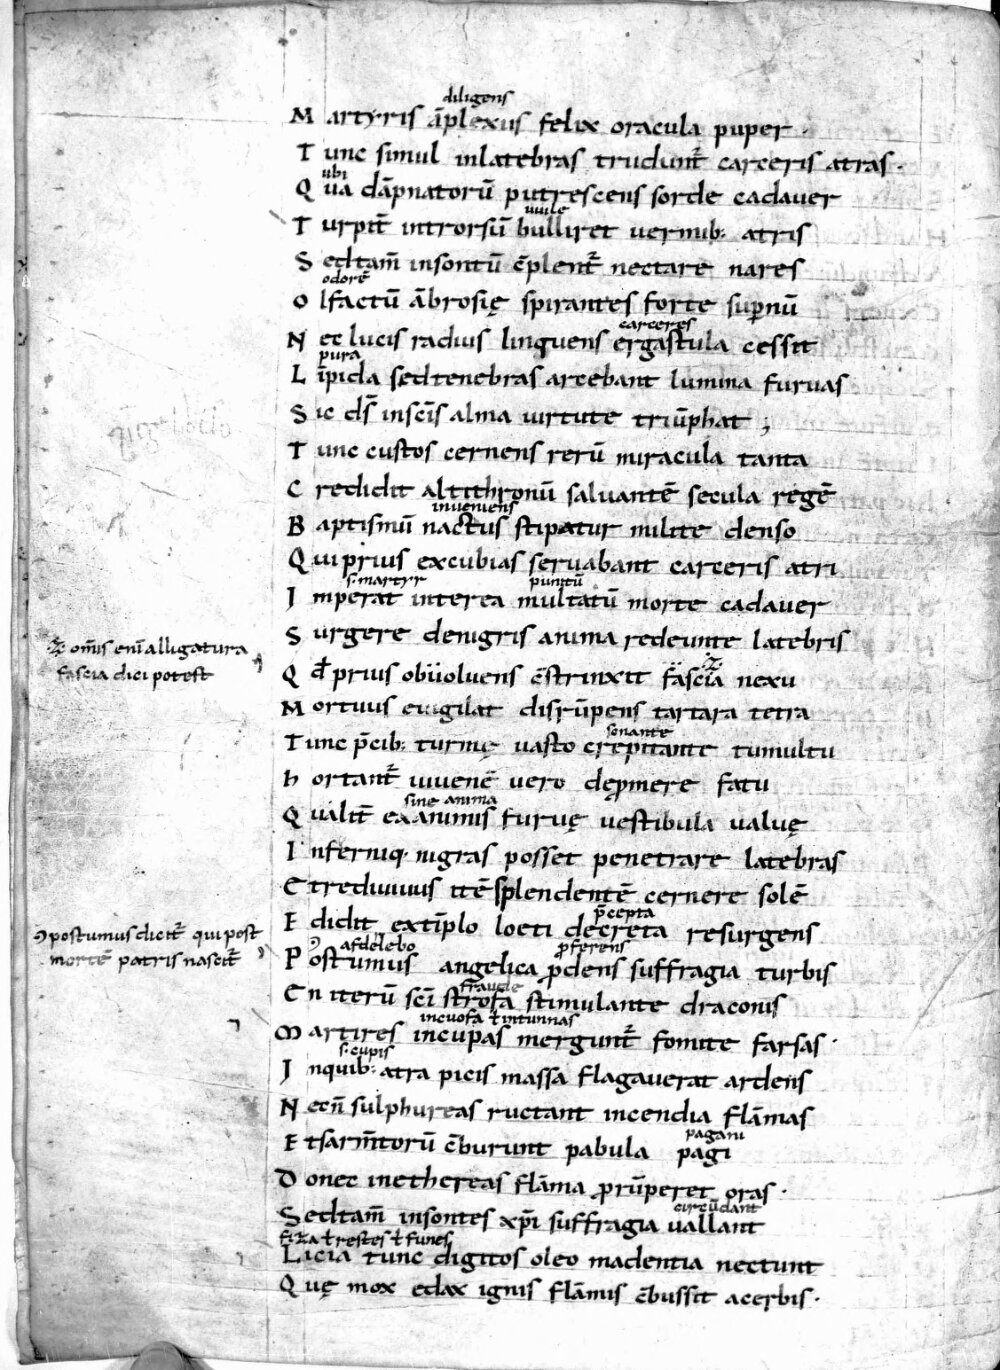 diligens
Martyris āplexus felix oracula puper.
Tunc simul inlatebras trudunt̄ carceris atras.
ubi
Qua dāpnatorū putrescens sorde cadauer
uiule
Turpit̄ introrsū bulliret uermib: atris
Sedtam̄ insontū c̄plent̄ nectare nares
odorē
Olfactū ābrosię spirantes forte suꝑnū
carceres
Nec lucis radius linquens ergastula cessit
pura
Līpida sedtenebras arcebant lumina furuas
Sic ds̄ insc̄is alma uirtute triūphat ;
Tunc custos cernens rerū miracula tanta
Credidit altithronū saluantē secula regē
inueniens
Baptismū nactus stipatur milite denso
Qui prius excubias seruabant carceris atri
s. martyr punitū
Imperat interea multatū morte cadauer
Surgere denigris anima redeunte latebris
·/. om̄is enī alligatura
fascia dici potest
Qđ prius obuoluens c̄strinxit fascia nexu
Mortuus euigilat disrūpens tartara tetra
sonante
Tunc p̄cib: turmę uasto crepitante tumultu
hortant̄ uiuenē uero deꝓmere fatu
sine anima
Qualit̄ exanimis furuę uestibula ualuę
Inferniq. nigras posset penetrare latebras
Etrediuiuus itē splendentē cernere solē
p̄cepta
Edidit extīplo loeti decreta resurgens
postumus dicit̄ qui post
mortē patris nascit̄
afdelebo ꝓferens
Postumus angelica ꝓdens suffragia turbis
fraude
En iterū sc̄i strofa stimulante draconis
incuofa ł intunnas
Martires incupas mergunt̄ fomite farsas.
s. cupis
Inquib: atra picis massa flagauerat ardens
Necn̄ sulphureas ructant incendia flāmas
pagani
Etsarm̄torū c̄burunt pabula pagi
Donec inethereas flāma ꝓrūperet oras.
circūdant
Sedtam̄ insontes xp̄i suffragia uallant
ł restes ł funes
Licia tunc digitos oleo madentia nectunt
Quę mox edax ignis flāmis c̄bussit acerbis.